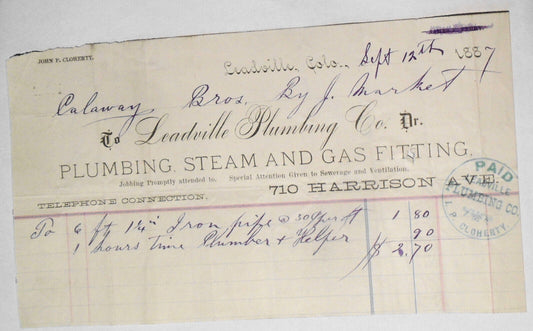 JOHN P. CLOHERTY.
Leadville, Colo., Sept 12th 1887
Calaway Bros. By J. Market
To Leadville Plumbing Co. Dr.
PLUMBING, STEAM AND GAS FITTING,
Jobbing Promptly attended to. Special Attention Given to Sewerage and Ventilation.
TELEPHONE CONNECTION. 710 HARRISON AVE.
PAID
LEADVILLE
PLUMBING CO.
J. P. CLOHERTY.
To 6 ft 1¼in Iron pipe @ 30c per ft 1 80
1 hours time Plumber & Helper 90
$ 2.70